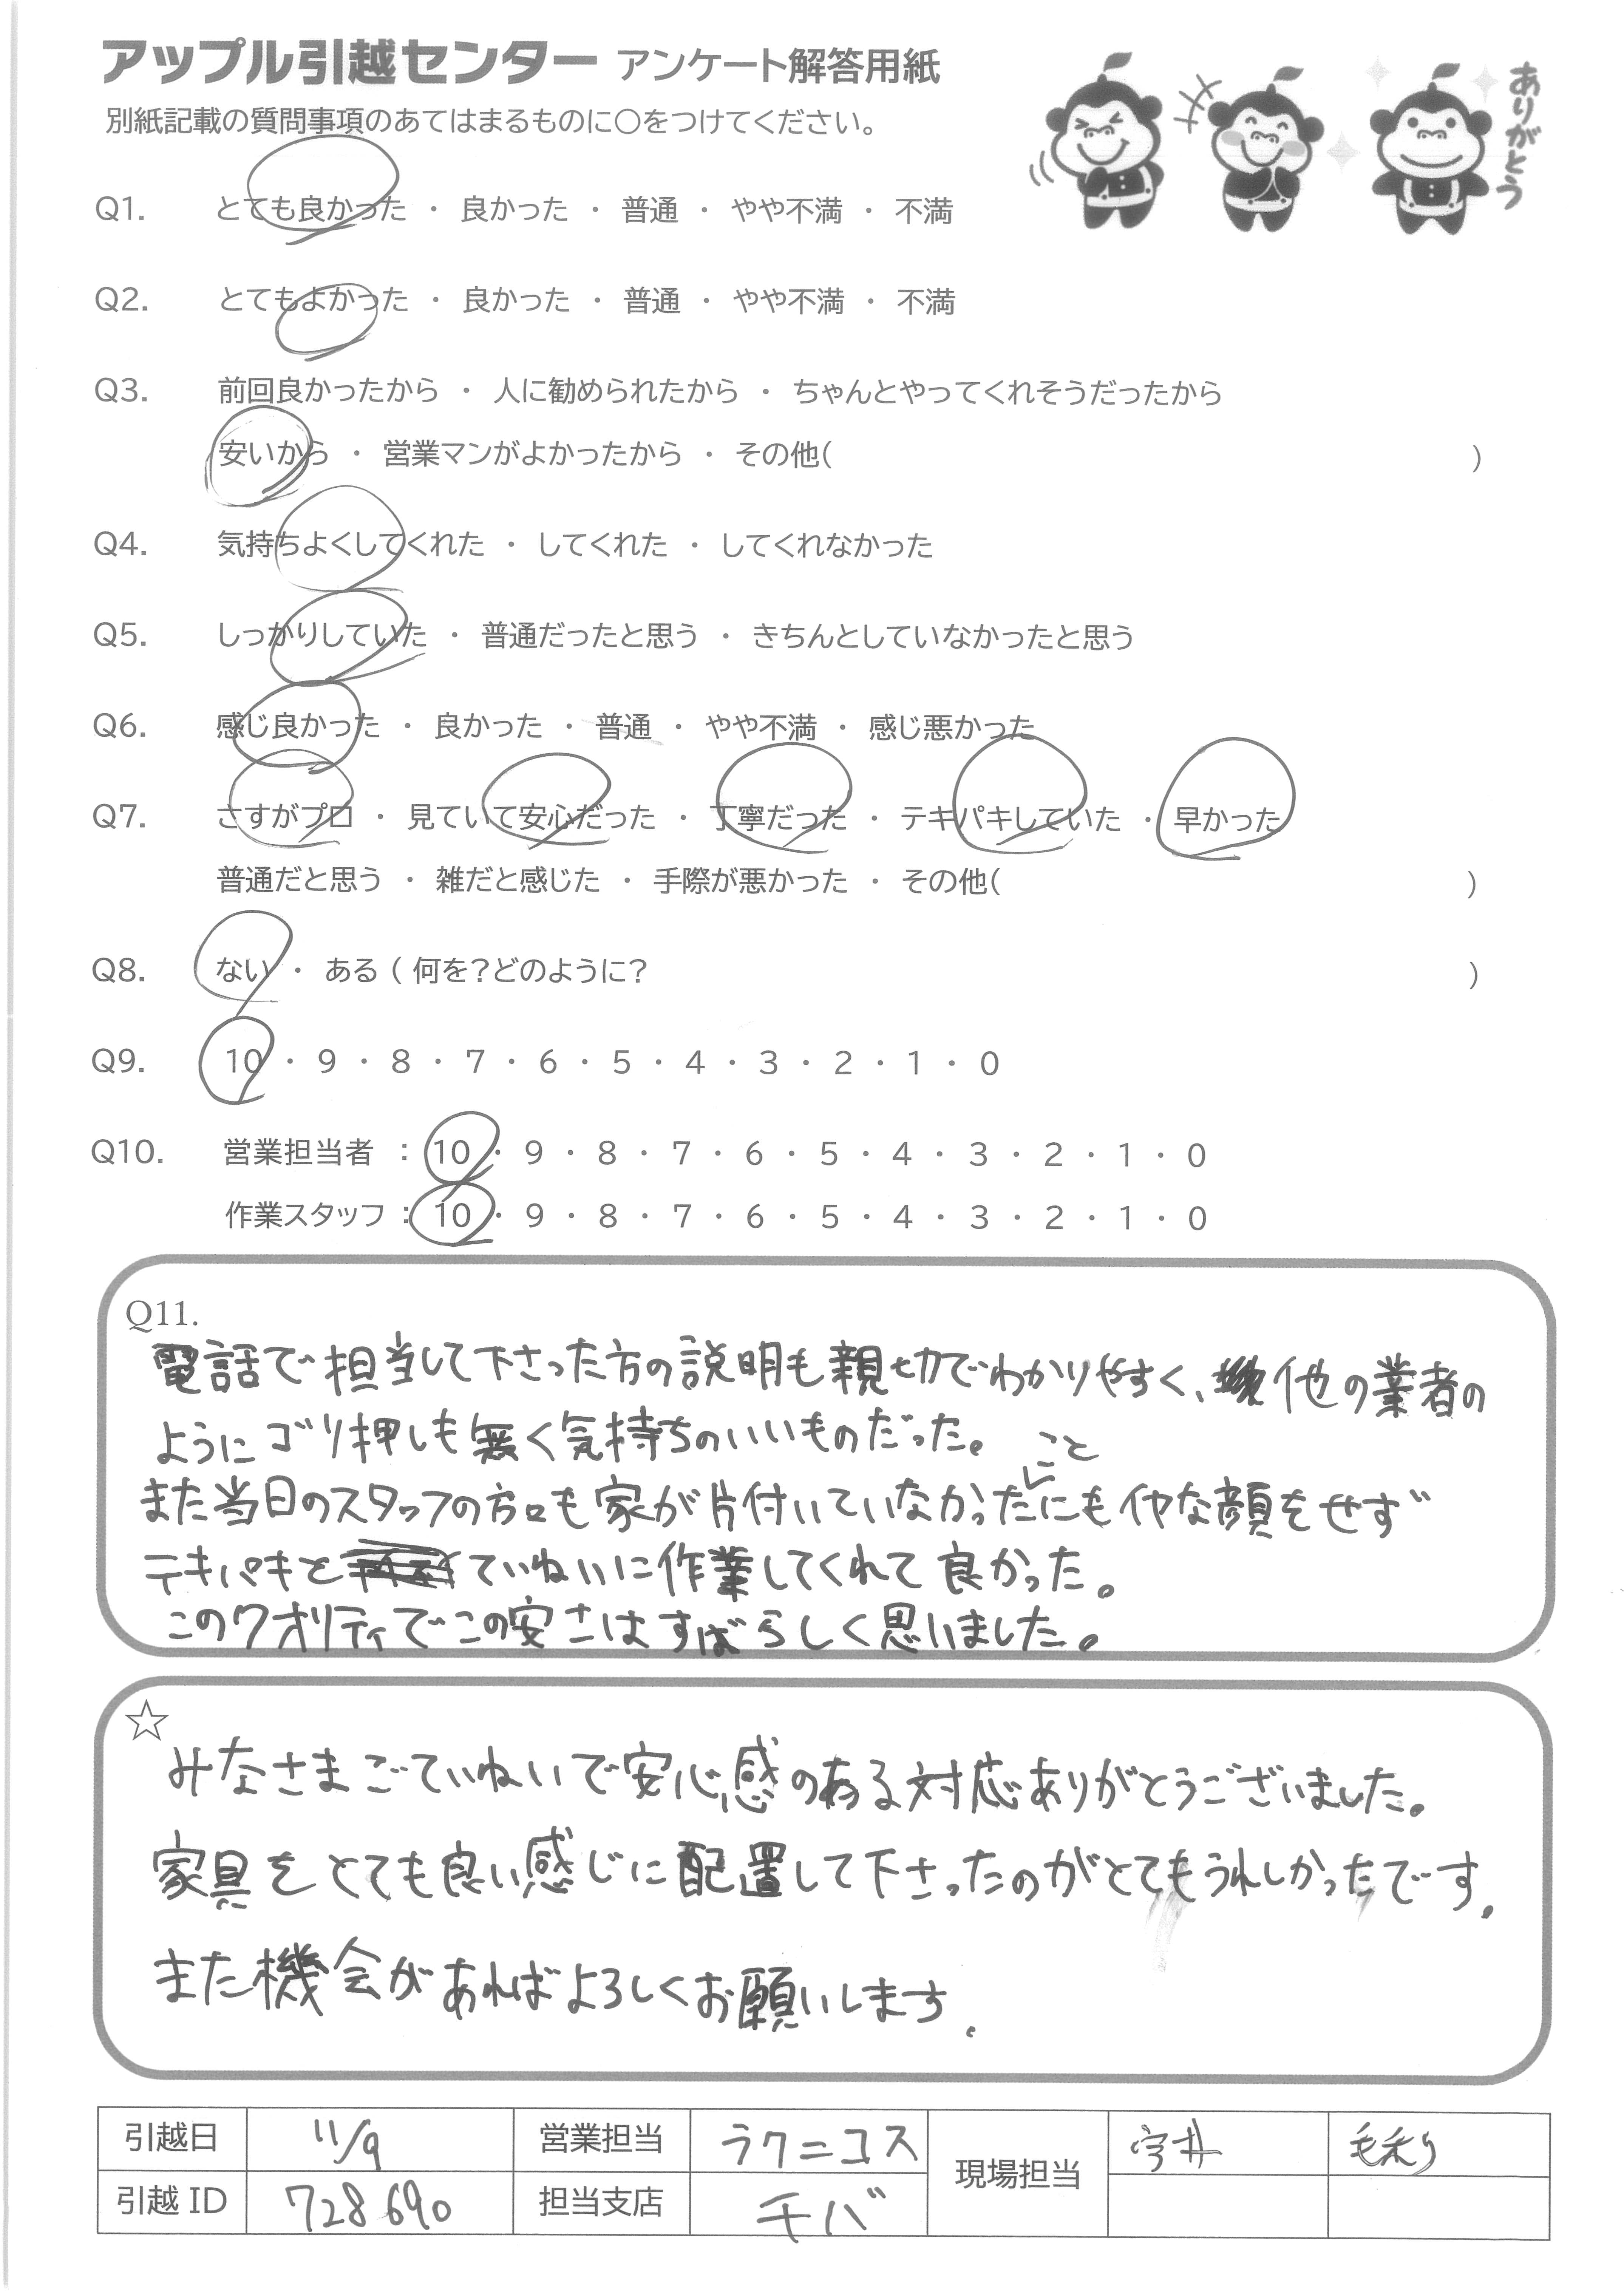 アップル引越センター アンケート解答用紙
別紙記載の質問事項のあてはまるものに○をつけてください。
ありがとう
Q1. とても良かった ・ 良かった ・ 普通 ・ やや不満 ・ 不満
Q2. とてもよかった ・ 良かった ・ 普通 ・ やや不満 ・ 不満
Q3. 前回良かったから ・ 人に勧められたから ・ ちゃんとやってくれそうだったから
安いから ・ 営業マンがよかったから ・ その他( )
Q4. 気持ちよくしてくれた ・ してくれた ・ してくれなかった
Q5. しっかりしていた ・ 普通だったと思う ・ きちんとしていなかったと思う
Q6. 感じ良かった ・ 良かった ・ 普通 ・ やや不満 ・ 感じ悪かった
Q7. さすがプロ ・ 見ていて安心だった ・ 丁寧だった ・ テキパキしていた ・ 早かった
普通だと思う ・ 雑だと感じた ・ 手際が悪かった ・ その他( )
Q8. ない ・ ある ( 何を?どのように? )
Q9. 10 ・ 9 ・ 8 ・ 7 ・ 6 ・ 5 ・ 4 ・ 3 ・ 2 ・ 1 ・ 0
Q10. 営業担当者 : 10 ・ 9 ・ 8 ・ 7 ・ 6 ・ 5 ・ 4 ・ 3 ・ 2 ・ 1 ・ 0
作業スタッフ : 10 ・ 9 ・ 8 ・ 7 ・ 6 ・ 5 ・ 4 ・ 3 ・ 2 ・ 1 ・ 0
Q11.
電話で担当して下さった方の説明も親切でわかりやすく、他の業者の
ようにゴリ押しも無く気持ちのいいものだった。
また当日のスタッフの方々も家が片付いていなかったことにもイヤな顔をせず
テキパキとていねいに作業してくれて良かった。
このクオリティでこの安さはすばらしく思いました。
☆
みなさまごていねいで安心感のある対応ありがとうございました。
家具をとても良い感じに配置して下さったのがとてもうれしかったです.
また機会があればよろしくお願いします.
引越日 11/9 営業担当 ラクニコス 現場担当
引越 ID 728690 担当支店 チバ